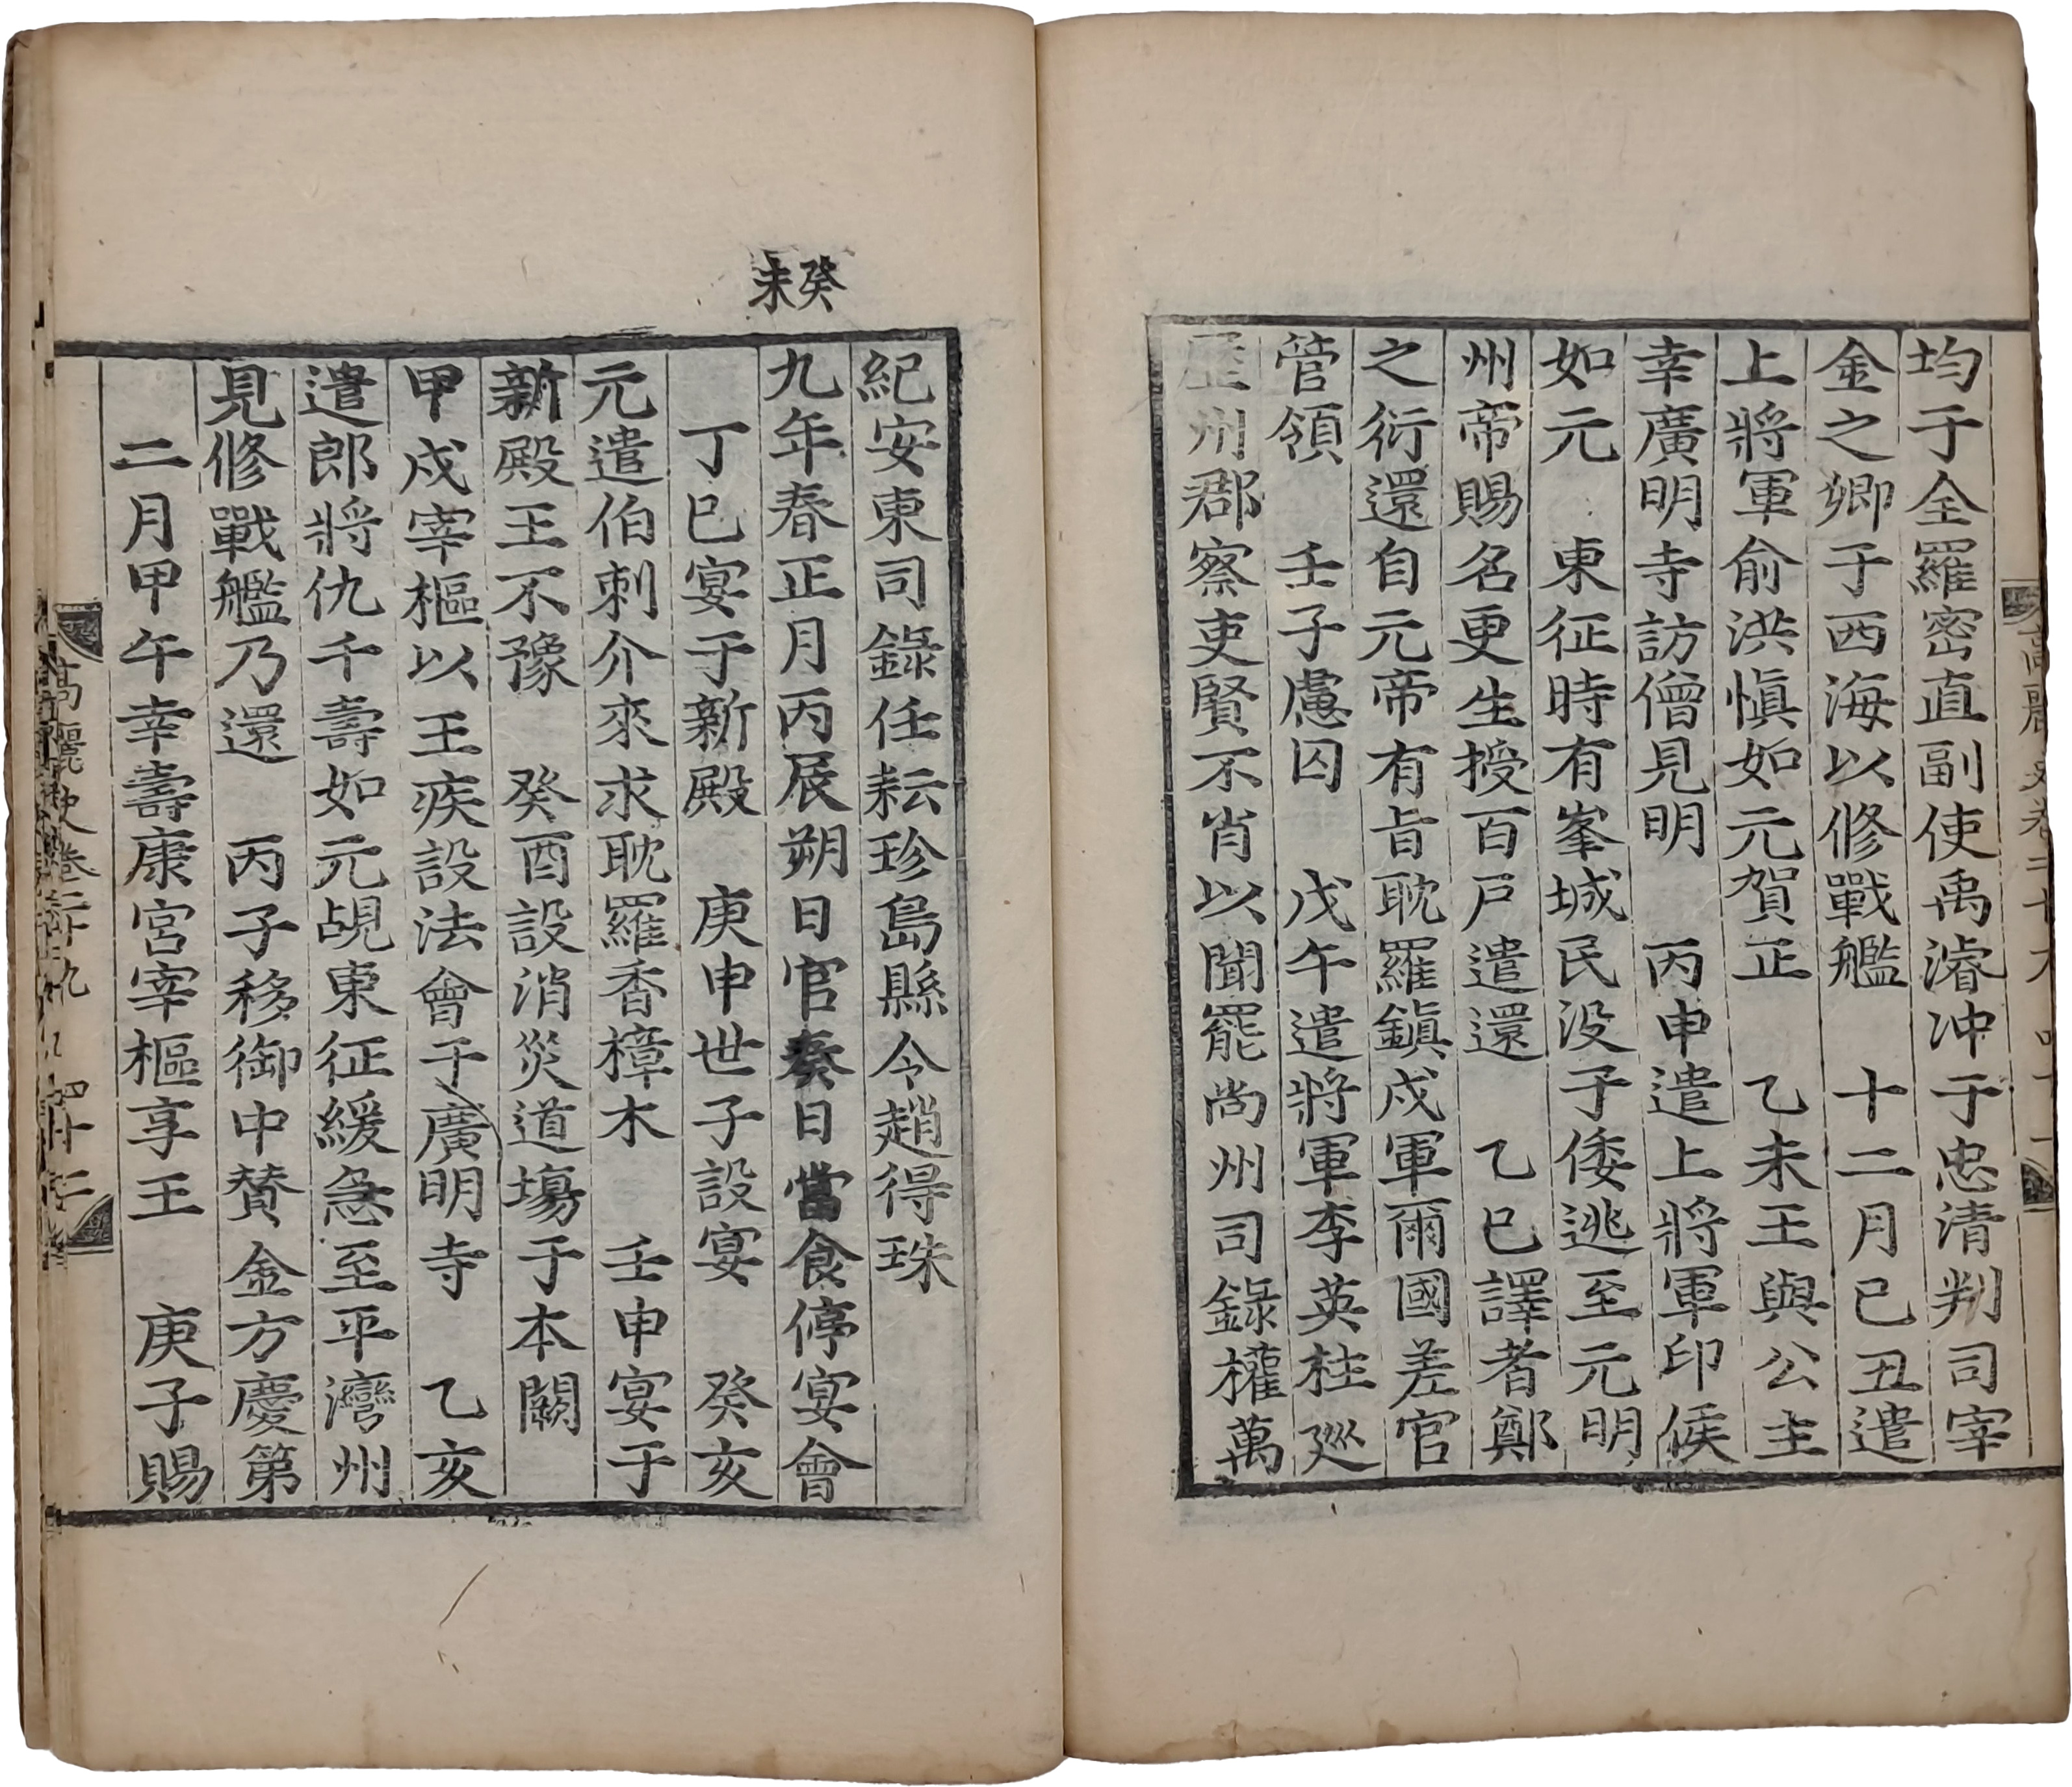 均于全羅密直副使禹濬冲于忠清判司宰
金之卿于西海以修戰艦　十二月己丑遣
上將軍俞洪愼如元賀正　乙未王與公主
幸廣明寺訪僧見明　丙申遣上將軍印侯
如元　東征時有峯城民没于倭逃至元明
州帝賜名更生授百戶遣還　乙巳譯者鄭
之衍還自元帝有旨耽羅鎭戍軍爾國差官
管領　壬子慮囚　戊午遣將軍李英柱廵
歷州郡察吏賢不肖以聞罷尚州司錄權萬
癸未
紀安東司錄任耘珍島縣令趙得珠
九年春正月丙辰朔日官奏日當食停宴會
丁巳宴于新殿　庚申世子設宴　癸亥
元遣伯刺介來求耽羅香樟木　壬申宴于
新殿王不豫　癸酉設消災道場于本闕
甲戌宰樞以王疾設法會于廣明寺　乙亥
遣郎將仇千壽如元覘東征緩急至平灣州
見修戰艦乃還　丙子移御中賛金方慶第
二月甲午幸壽康宮宰樞享王　庚子賜
高麗史卷二十九　四十二